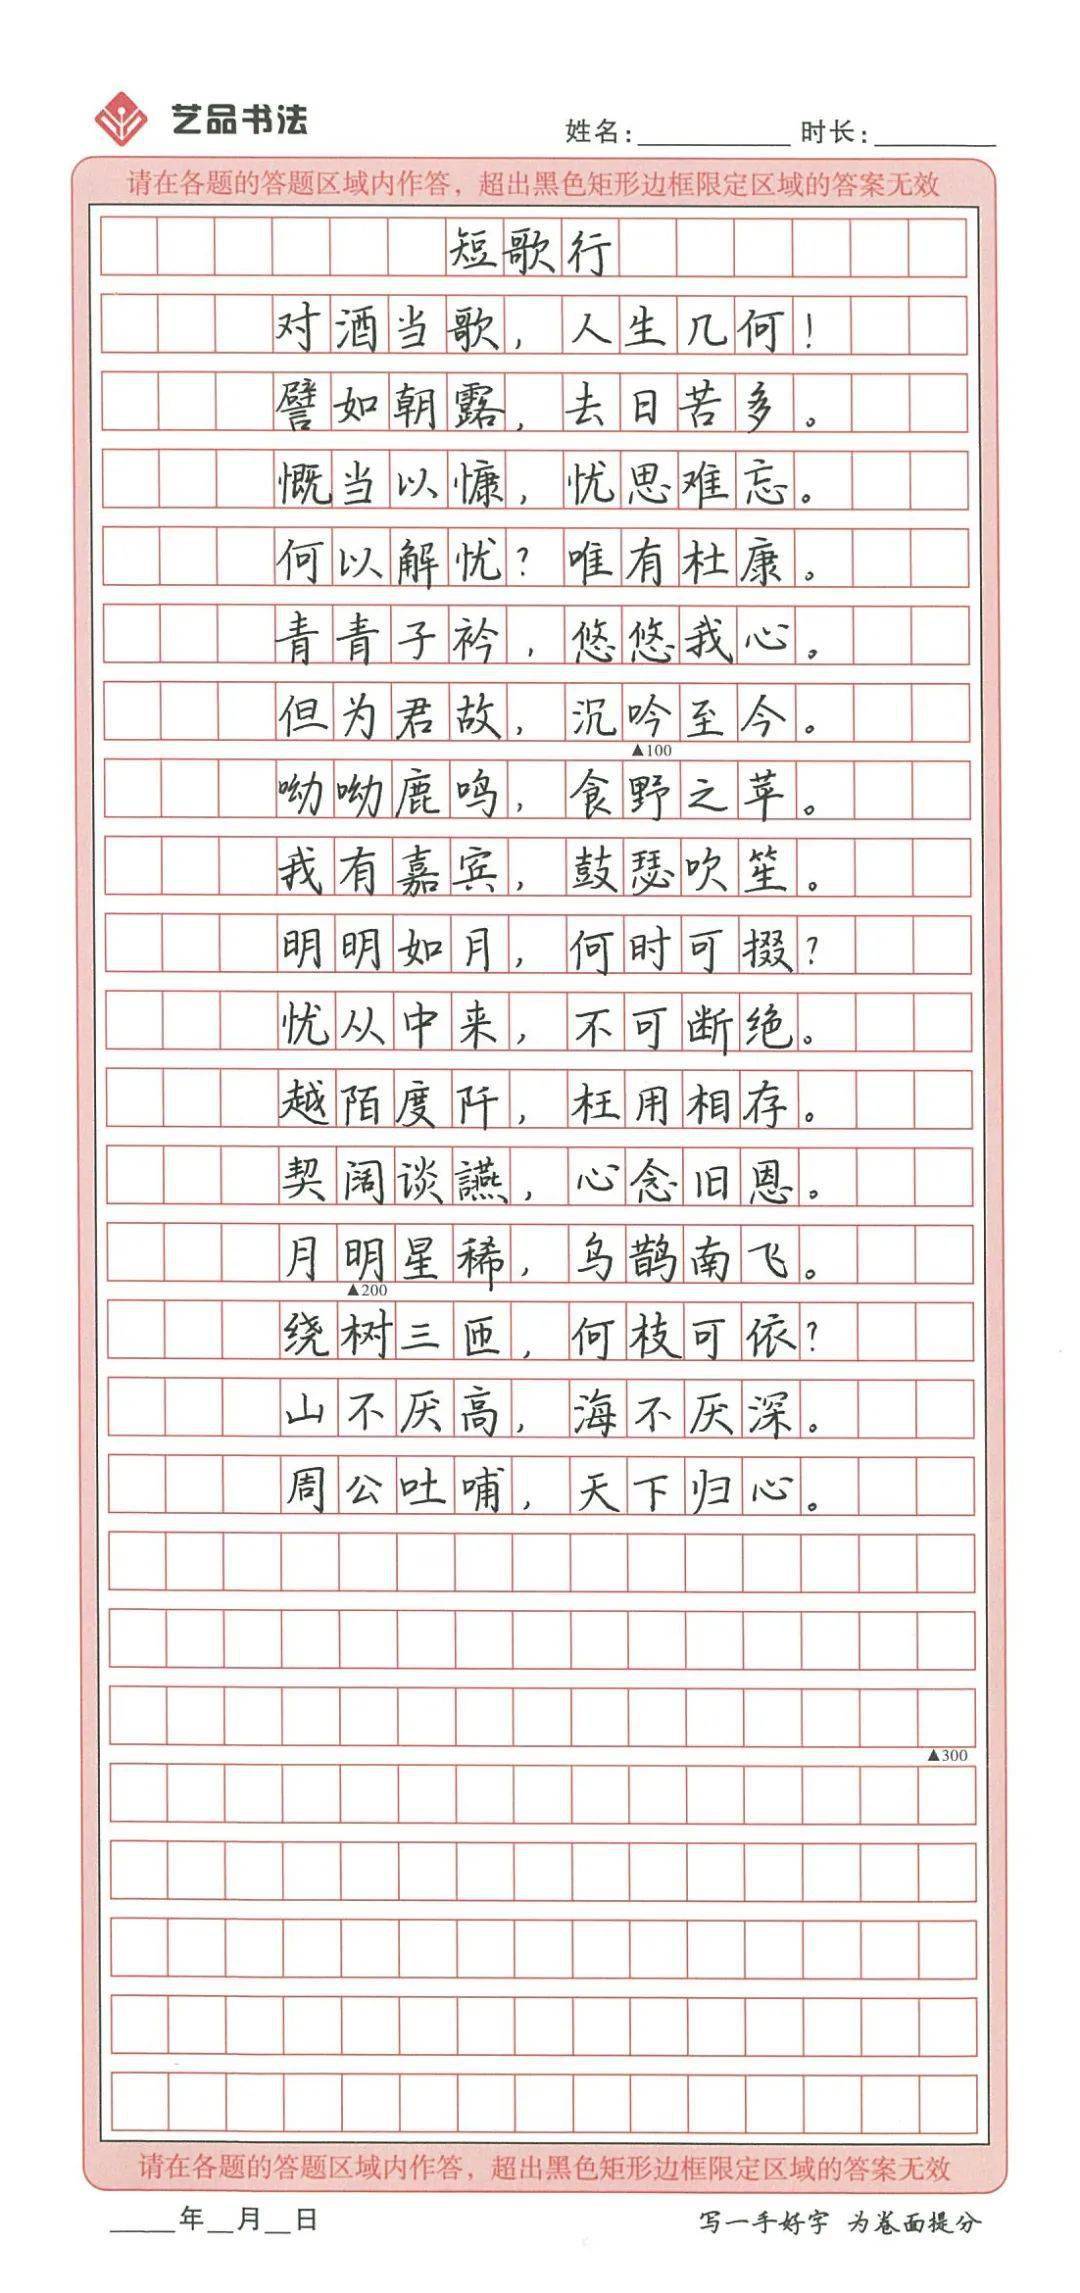 艺品书法
姓名：________ 时长：________
请在各题的答题区域内作答，超出黑色矩形边框限定区域的答案无效
短歌行
对酒当歌，人生几何！
譬如朝露，去日苦多。
慨当以慷，忧思难忘。
何以解忧？唯有杜康。
青青子衿，悠悠我心。
但为君故，沉吟至今。
▲100
呦呦鹿鸣，食野之苹。
我有嘉宾，鼓瑟吹笙。
明明如月，何时可掇？
忧从中来，不可断绝。
越陌度阡，枉用相存。
契阔谈讌，心念旧恩。
月明星稀，乌鹊南飞。
▲200
绕树三匝，何枝可依？
山不厌高，海不厌深。
周公吐哺，天下归心。
▲300
请在各题的答题区域内作答，超出黑色矩形边框限定区域的答案无效
____年__月__日
写一手好字 为卷面提分